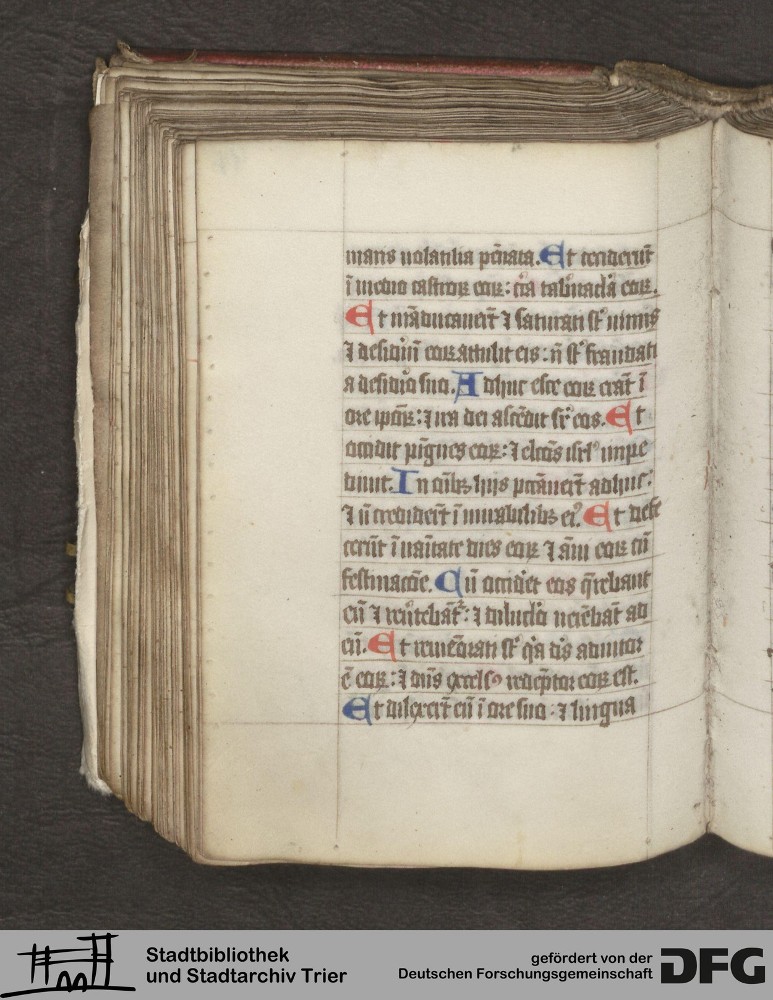 maris uolatilia pēnata. Et ceciderūt
ī medio castroꝝ eoꝝ: c̄ca tab̾nac̄la eoꝝ.
Et māducauer̄t ⁊ saturati s̄t nimis
⁊ desid̾iū eoꝝ attulit eis: nō s̄t fraudati
a desid̾io suo. Adhuc esce eoꝝ erāt ī
ore ipōꝝ: ⁊ ira dei ascēdit sr̄ eos. Et
occidit pīgues eoꝝ: ⁊ elc̄os isrl̾ impe
diuit. In oīibꝫ hiis pccāuer̄t adhuc:
⁊ nō credider̄t ī mirabilibꝫ ei᷒. Et defe
cerūt ī uanitate dies eoꝝ ⁊ āni eoꝝ cū
festinacōe. Cū occid̾et eos q̄rebant
eū ⁊ reu̾tebāt᷑: ⁊ diluc̄lo ueniebāt ad
eū. Et rememorati s̄t q̄a ds̄ adiutor
ē eoꝝ: ⁊ deus excels᷒ redēptor eoꝝ est.
Et dilexer̄t eū ī ore suo: ⁊ lingua
Stadtbibliothek
und Stadtarchiv Trier
gefördert von der
Deutschen Forschungsgemeinschaft
DFG